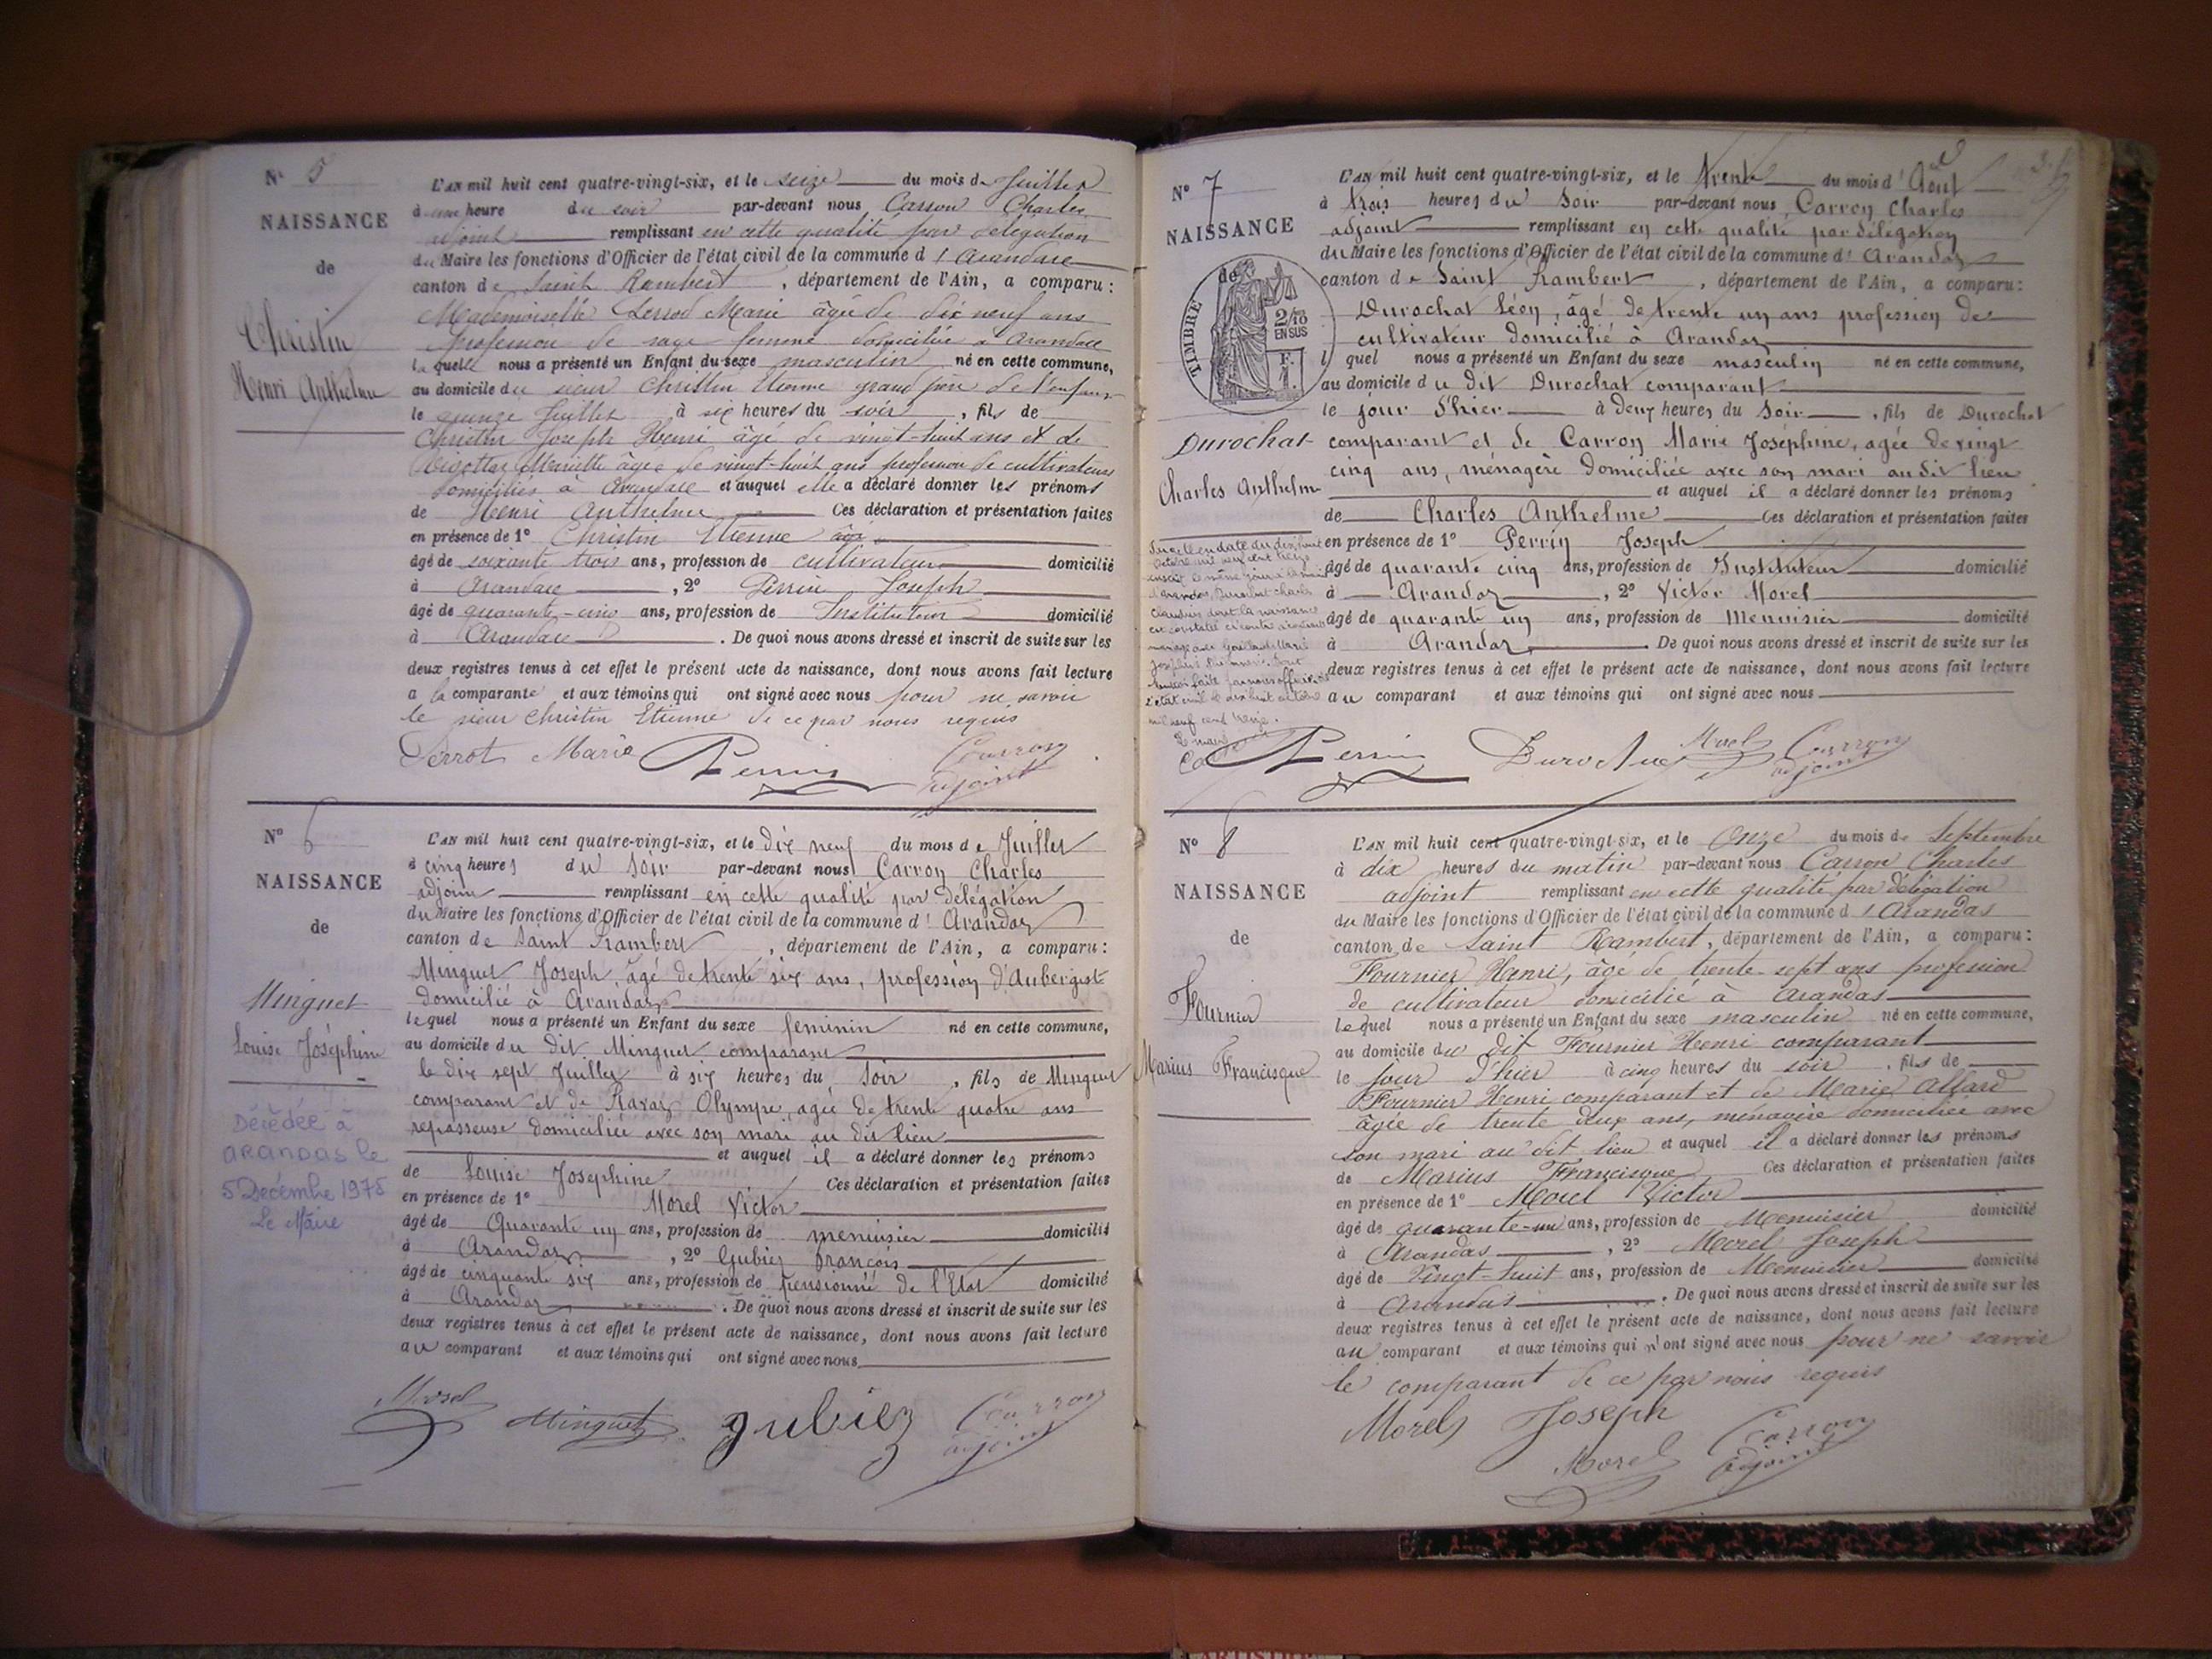 N° 5
NAISSANCE
de
Christin
Henri Anthelme
L'AN mil huit cent quatre-vingt-six, et le seize du mois de Juillet
à une heure du soir par-devant nous Carron Charles
adjoint remplissant en cette qualité par délégation
du Maire les fonctions d'Officier de l'état civil de la commune d'
canton de Saint Rambert, département de l'Ain, a comparu:
Mademoiselle Marie âgée de dix neuf ans
profession de sage femme domiciliée à
laquelle nous a présenté un Enfant du sexe masculin né en cette commune,
au domicile du sieur Christin Etienne grand père de l'enfant
le quinze Juillet à six heures du soir, fils de
Christin Joseph Henri âgé de vingt-huit ans et de
Mariette âgée de vingt-huit ans profession de cultivateurs
domiciliés à et auquel elle a déclaré donner les prénoms
de Henri Anthelme Ces déclaration et présentation faites
en présence de 1° Christin Etienne âgé
âgé de soixante trois ans, profession de cultivateur domicilié
à , 2° Perrin Joseph
âgé de quarante-cinq ans, profession de Instituteur domicilié
à . De quoi nous avons dressé et inscrit de suite sur les
deux registres tenus à cet effet le présent acte de naissance, dont nous avons fait lecture
a la comparante et aux témoins qui ont signé avec nous pour ne savoir
le sieur Christin Etienne de ce par nous requis
Perrot Marie Perrin Carron
adjoint
N° 6
NAISSANCE
de
Minguet
Louise Joséphine
Décédée à
ARANDAS le
5 Décembre 1975
Le Maire
L'AN mil huit cent quatre-vingt-six, et le dix neuf du mois de Juillet
à cinq heures du soir par-devant nous Carron Charles
adjoint remplissant en cette qualité par délégation
du Maire les fonctions d'Officier de l'état civil de la commune d'Arandas
canton de Saint Rambert, département de l'Ain, a comparu:
Minguet Joseph, âgé de trente six ans, profession d'Aubergiste
domicilié à Arandas
lequel nous a présenté un Enfant du sexe feminin né en cette commune,
au domicile du dit Minguet comparant
le dix sept Juillet à six heures du Soir, fils de Minguet
comparant et de Ravaz Olympe, agée de trente quatre ans
repasseuse domiciliée avec son mari au dit lieu
et auquel il a déclaré donner les prénoms
de Louise Josephine Ces déclaration et présentation faites
en présence de 1° Morel Victor
âgé de Quarante un ans, profession de menuisier domicilié
à Arandas, 2° Gubiez François
âgé de cinquante six ans, profession de pensionné de l'Etat domicilié
à Arandas. De quoi nous avons dressé et inscrit de suite sur les
deux registres tenus à cet effet le présent acte de naissance, dont nous avons fait lecture
au comparant et aux témoins qui ont signé avec nous
Morel Minguet gubiez Carron
adjoint
N° 7
NAISSANCE
de
TIMBRE
2/10
EN SUS
Durochat
Charles Anthelm
L'AN mil huit cent quatre-vingt-six, et le trente du mois d'Aout
à trois heures du Soir par-devant nous Carron Charles
adjoint remplissant en cette qualité par délégation
du Maire les fonctions d'Officier de l'état civil de la commune d'Arandas
canton de Saint Rambert, département de l'Ain, a comparu:
Durochat Léon, âgé de trente un ans profession de
cultivateur domicilié à Arandas
lequel nous a présenté un Enfant du sexe masculin né en cette commune,
au domicile du dit Durochat comparant
le jour d'hier à deux heures du Soir, fils de Durochat
comparant et de Carron Marie Joséphine, agée de vingt
cinq ans, ménagère domiciliée avec son mari au dit lieu
et auquel il a déclaré donner les prénoms
de Charles Anthelme Ces déclaration et présentation faites
en présence de 1° Perrin Joseph
âgé de quarante cinq ans, profession de Instituteur domicilié
à Arandas, 2° Victor Morel
âgé de quarante un ans, profession de Menuisier domicilié
à Arandas. De quoi nous avons dressé et inscrit de suite sur les
deux registres tenus à cet effet le présent acte de naissance, dont nous avons fait lecture
au comparant et aux témoins qui ont signé avec nous
Perrin Durochat Morel Carron
adjoint
N° 8
NAISSANCE
de
Fournier
Marius Francisque
L'AN mil huit cent quatre-vingt-six, et le Onze du mois de Septembre
à dix heures du matin par-devant nous Carron Charles
adjoint remplissant en cette qualité par délégation
du Maire les fonctions d'Officier de l'état civil de la commune d'Arandas
canton de Saint Rambert, département de l'Ain, a comparu:
Fournier Henri, âgé de trente-sept ans profession
de cultivateur domicilié à Arandas
lequel nous a présenté un Enfant du sexe masculin né en cette commune,
au domicile du dit Fournier Henri comparant
le jour d'hier à cinq heures du soir, fils de
Fournier Henri comparant et de Marie Allard
âgée de trente deux ans, ménagère domiciliée avec
son mari au dit lieu et auquel il a déclaré donner les prénoms
de Marius Francisque Ces déclaration et présentation faites
en présence de 1° Morel Victor
âgé de quarante-un ans, profession de Menuisier domicilié
à Arandas, 2° Morel Joseph
âgé de Vingt-huit ans, profession de Menuisier domicilié
à Arandas. De quoi nous avons dressé et inscrit de suite sur les
deux registres tenus à cet effet le présent acte de naissance, dont nous avons fait lecture
au comparant et aux témoins qui n'ont signé avec nous pour ne savoir
le comparant de ce par nous requis
Morel Joseph Carron
Morel adjoint